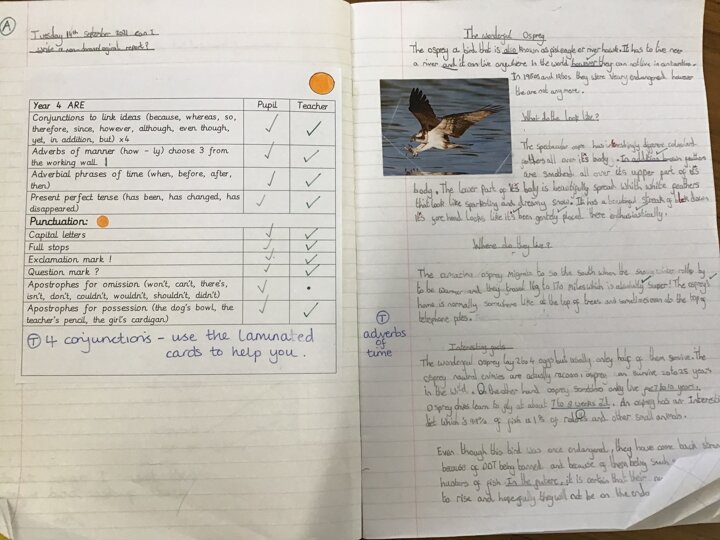 A
Tuesday 14th September 2021 Can I
write a non-chronological report?
Year 4 ARE Pupil Teacher
Conjunctions to link ideas (because, whereas, so,
therefore, since, however, although, even though,
yet, in addition, but) x4
Adverbs of manner (how – ly) choose 3 from
the working wall.
Adverbial phrases of time (when, before, after,
then)
Present perfect tense (has been, has changed, has
disappeared)
Punctuation:
Capital letters
Full stops
Exclamation mark !
Question mark ?
Apostrophes for omission (won't, can't, there's,
isn't, don't, couldn't, wouldn't, shouldn't, didn't)
Apostrophes for possession (the dog's bowl, the
teacher's pencil, the girl's cardigan.)
T 4 conjunctions - use the laminated
cards to help you.
The wonderful Osprey
The osprey a bird that is also known as fish eagle or river hawk. It has to live near
a river and it can live anywhere in the world however they can not live in antarctica.
In 1950s and 1960s they were very endangered however
the are not any more.
What do the look like?
The spectacular osprey has
feathers all over it's body. In addition brown
are all over it's upper part of it's
body. The lower part of it's body is beautifully spread which white feathers
that look like sparkling and dreamy snow. It has a beautiful streak of
it's head looks like it's been gently placed there enthusiastically.
Where do they live?
The osprey migrate to the south when the
to be warmer and they travel 160 to 170 miles which is absolutely super! The osprey's
home is normally somewhere like at the top of trees and sometimes even at the top of
telephone poles.
T
adverbs
of
time
Interesting
The wonderful osprey lay 2 to 4 eggs but usually only half of them survive. The
osprey natural enimies are actually racoons. Osprey can survive 20 to 25 years
in the wild. On the other hand osprey sometimes only live
Osprey chicks learn to fly at about An osprey has an Interesti
diet which is 99% of fish a 1% of and other small animals.
Even though this bird was once endangered, they have come back stron
because of DDT being banned and because of them being such
hunters of fish. In the future, it is certain that their
to rise and hopefully they will not be on the enda